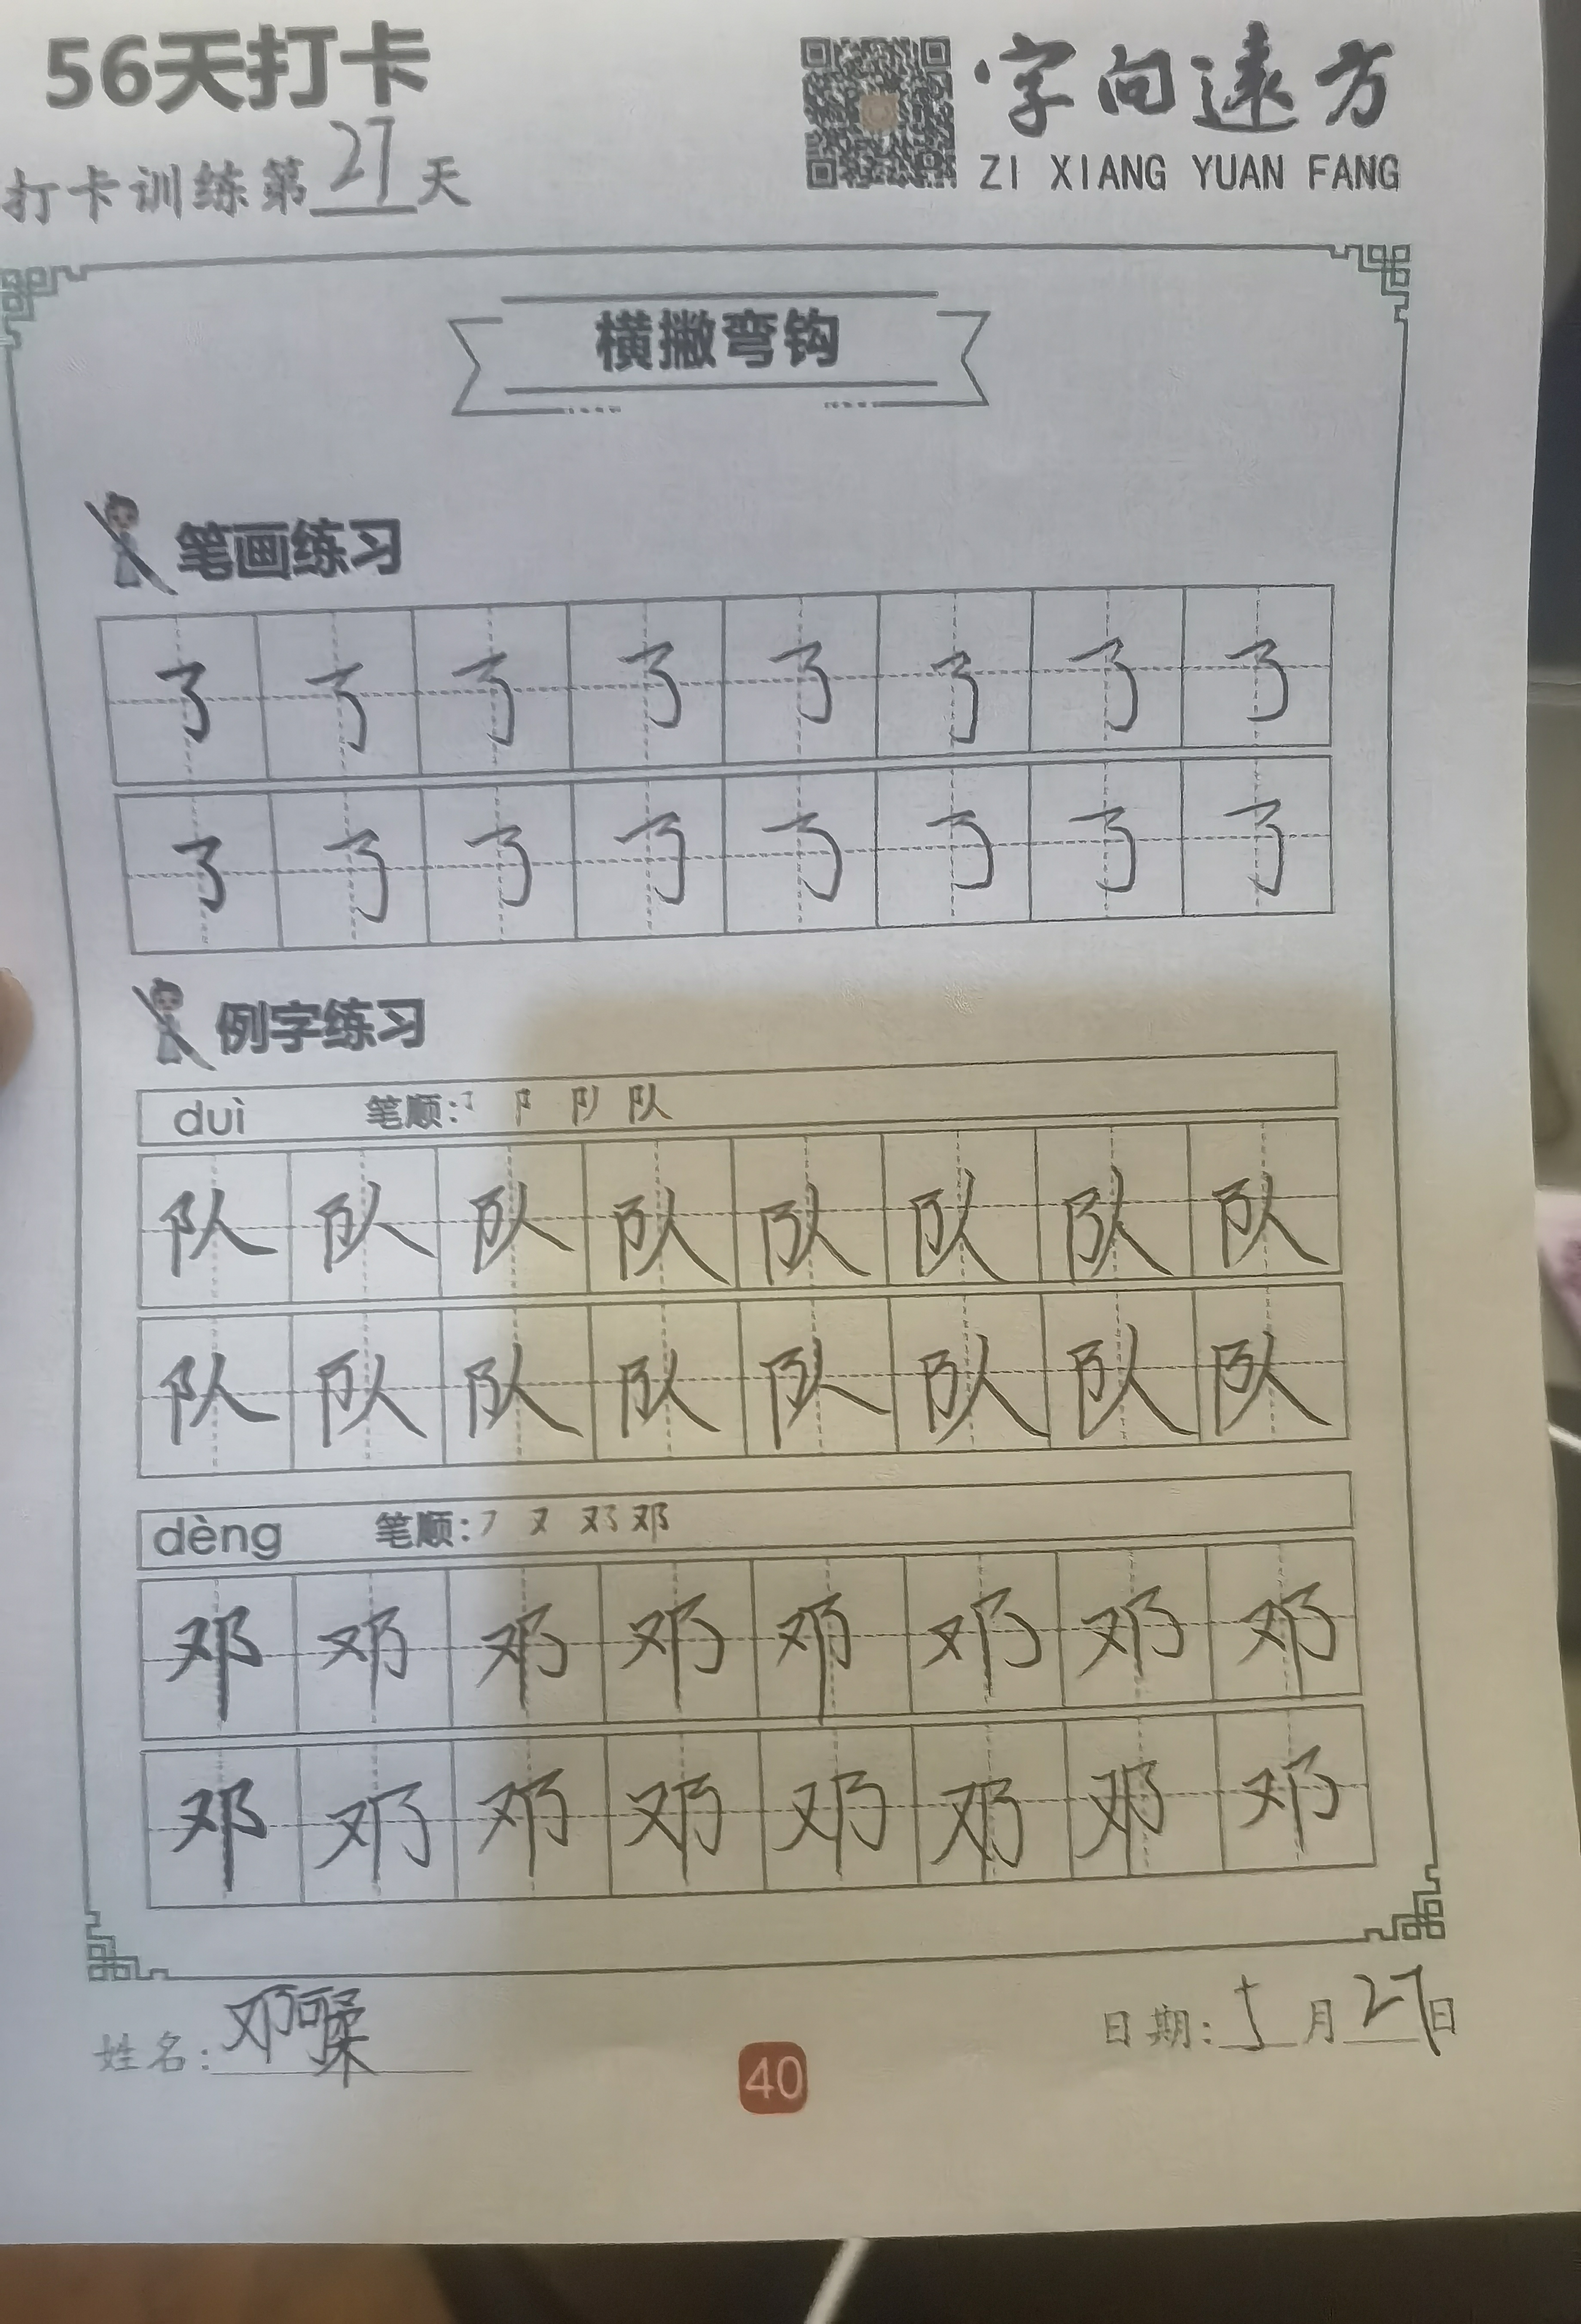 56天打卡
字向遠方
ZI XIANG YUAN FANG
打卡训练第27天
横撇弯钩
笔画练习
㇌㇌㇌㇌㇌㇌㇌㇌
㇌㇌㇌㇌㇌㇌㇌㇌
例字练习
duì 笔顺: 队
队队队队队队队队
队队队队队队队队
dèng 笔顺: 又 邓
邓邓邓邓邓邓邓邓
邓邓邓邓邓邓邓邓
姓名: 邓
日期: 5月27日
40